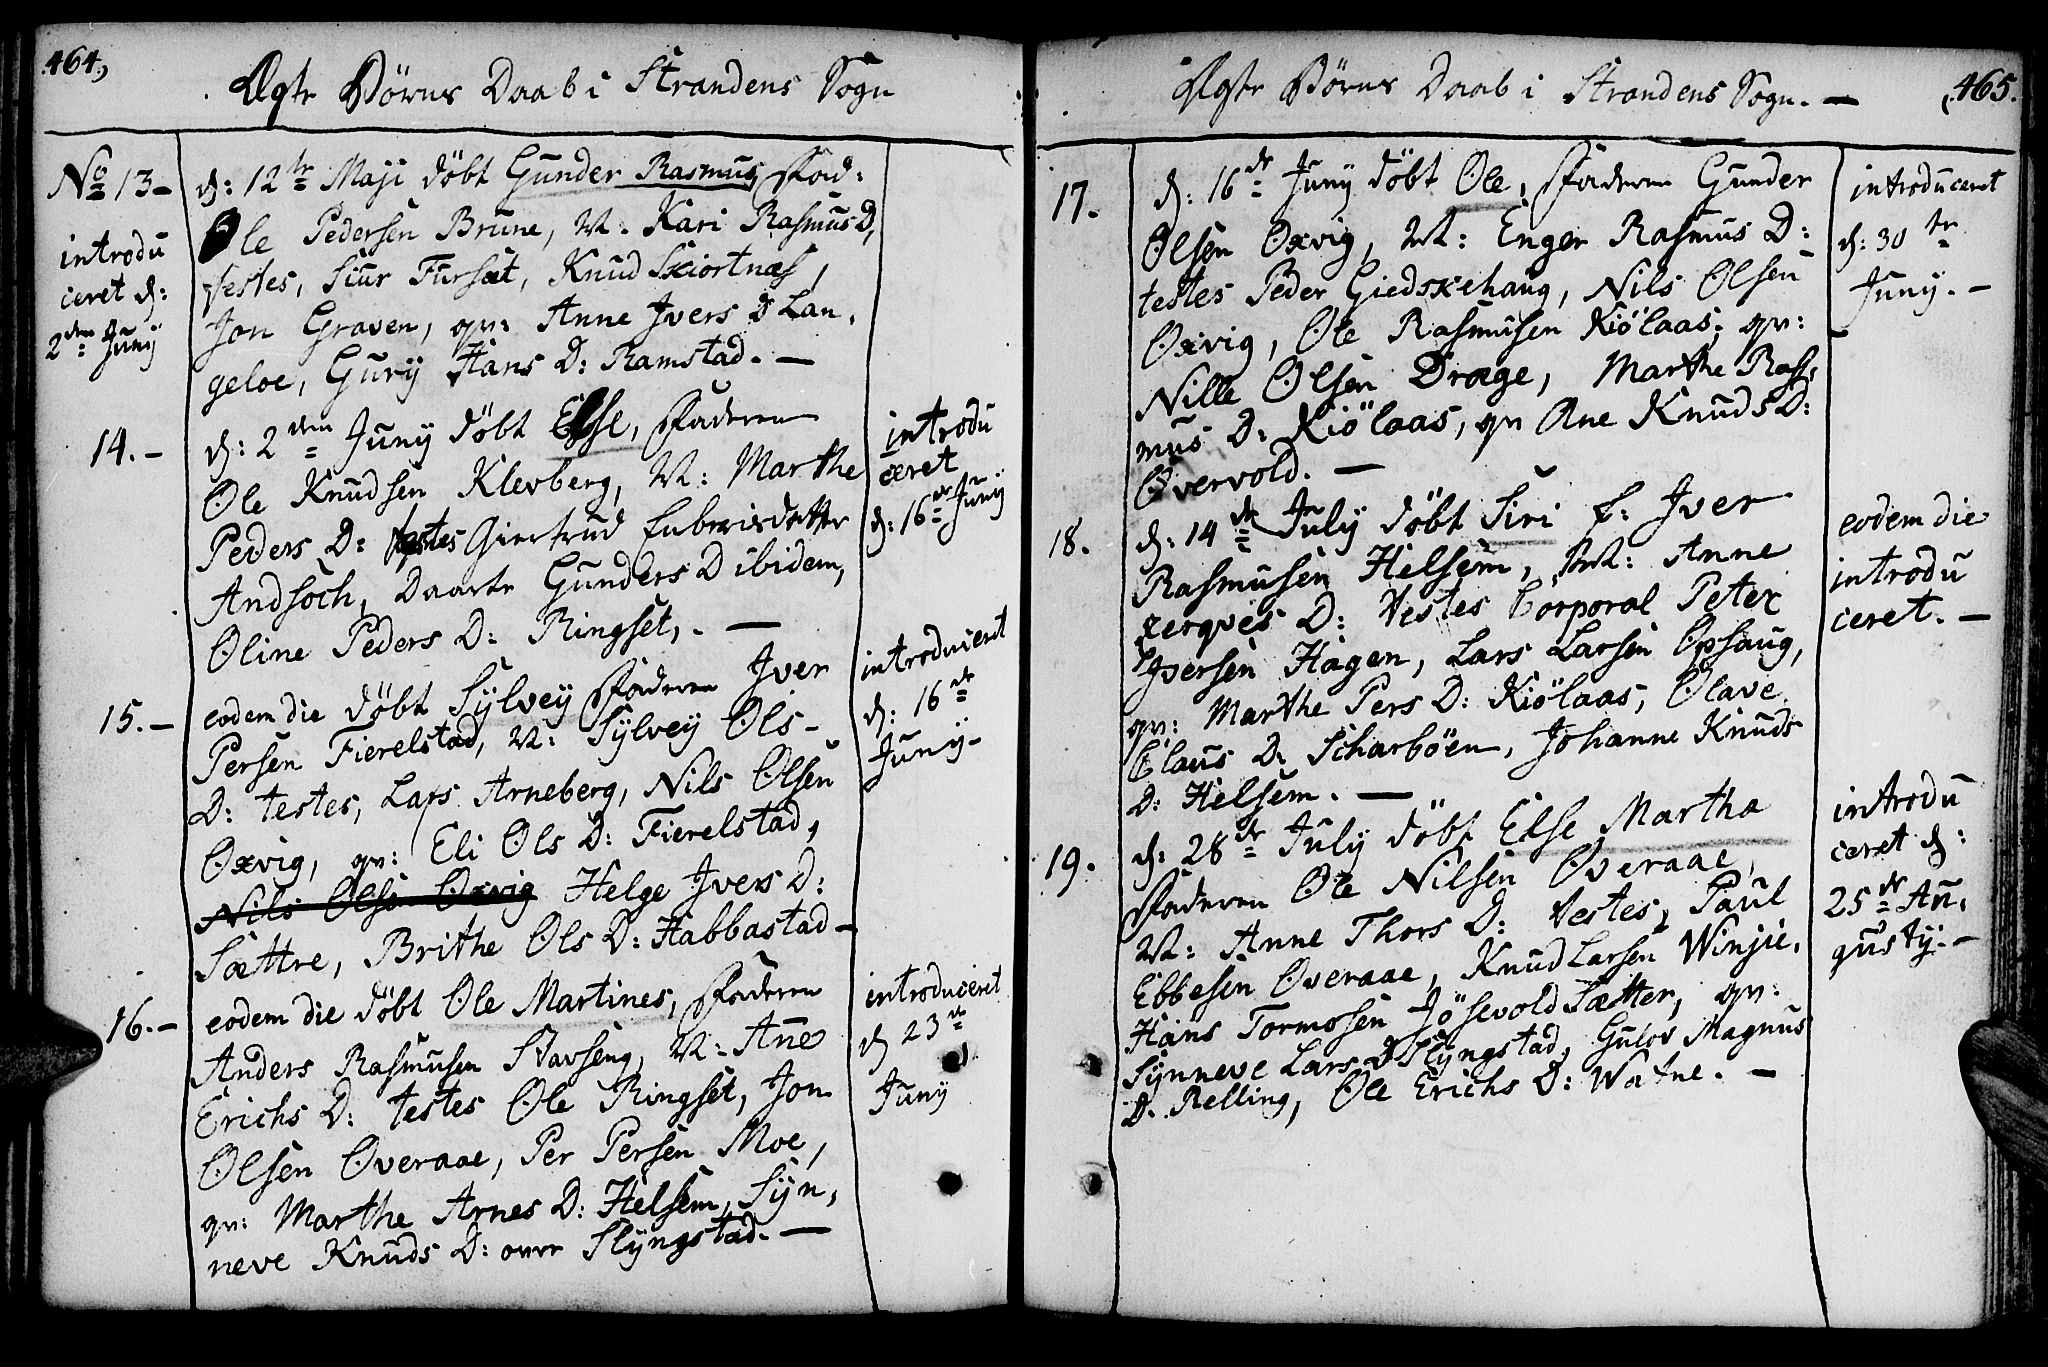 464,
Ægte Börns Daab i Strandens Sogn
No 13-
d: 12te Maji döbt Gunder Rasmus, Fad:
Ole Pedersen Brune, M: Kari Rasmus D,
introdu
ceret d:
2den Juny
testes, Siur Fursæt, Knud Skiortnæs,
Jon Graven, qv: Anne Jvers D Lan,
geloe, Gury Hans D: Ramstad. —
14. -
d: 2den Juny döbt Else, Faderen
Ole Knudsen Klevberg, M: Marthe
Peders D: testes Giertrud
Andsoch, Daarte Gunders D ibidem,
Oline Peders D: Ringset, . —
introdu
ceret
d: 16de Juny
15. -
eodem die döbt Sylvey Faderen Jver
Persen Fierelstad, M: Sylvey Ols-
D: testes, Lars Arneberg, Nils Olsen
Oxvig, qv: Eli Ols D: Fierelstad,
Nils Olsen Oxvig Helge Jvers D:
Sættre, Brithe Ols D: Habbastad -
introduceret
d: 16de
Juny-
16. -
eodem die döbt Ole Martines, Faderen
Anders Rasmusen Stavseng, M: Ane
Erichs D: testes Ole Ringset, Jon
Olsen Overaae, Per Persen Moe,
qv: Marthe Arnes D: Helsem, Syn,
neve Knuds D: ovre Slyngstad. —
introduceret
d 23de
Juny
Ægte Börns Daab i Strandens Sogn. —
465.
17.
d: 16de Juny döbt Ole, Faderen Gunder
Olsen Oxvig, M: Enger Rasmus D:
testes Peder Giedskehaug, Nils Olsen
Oxvig, Ole Rasmusen Kiölaas, qv:
Nille Olsen Drage, Marthe Ras,
mus D: Kiölaas, qv Ane Knuds D:
Overvold. —
introduceret
d: 30te
Juny. -
18.
d: 14de July döbt Siri f: Jver
Rasmusen Helsem, M: Anne
D: testes Corporal Peter
Jversen Hagen, Lars Larsen Opsaug,
qv: Marthe Pers D: Kiölaas, Olave
Claus D: Scharböen, Johanne Knuds
D: Helsem. —
eodem die
introdu
ceret. -
19.
d: 28de July döbt Else Martha
Faderen Ole Nilsen Overaae,
M: Anne Thors D: testes, Paul
Ebbesen Overaae, Knud Larsen Winjie,
Hans Tormosen Jösevold Sætter, qv:
Synneve Lars D Slyngstad, Gulov Magnus
D. Relling, Ole Erichs D: Watne. —
introdu
ceret d:
25de Au,
gusty. -